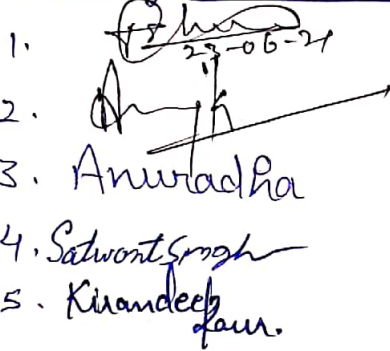 1.
23-06-21
2.
3. Anuradha
4. Satwant Singh
5. Kirandeep
Kaur.